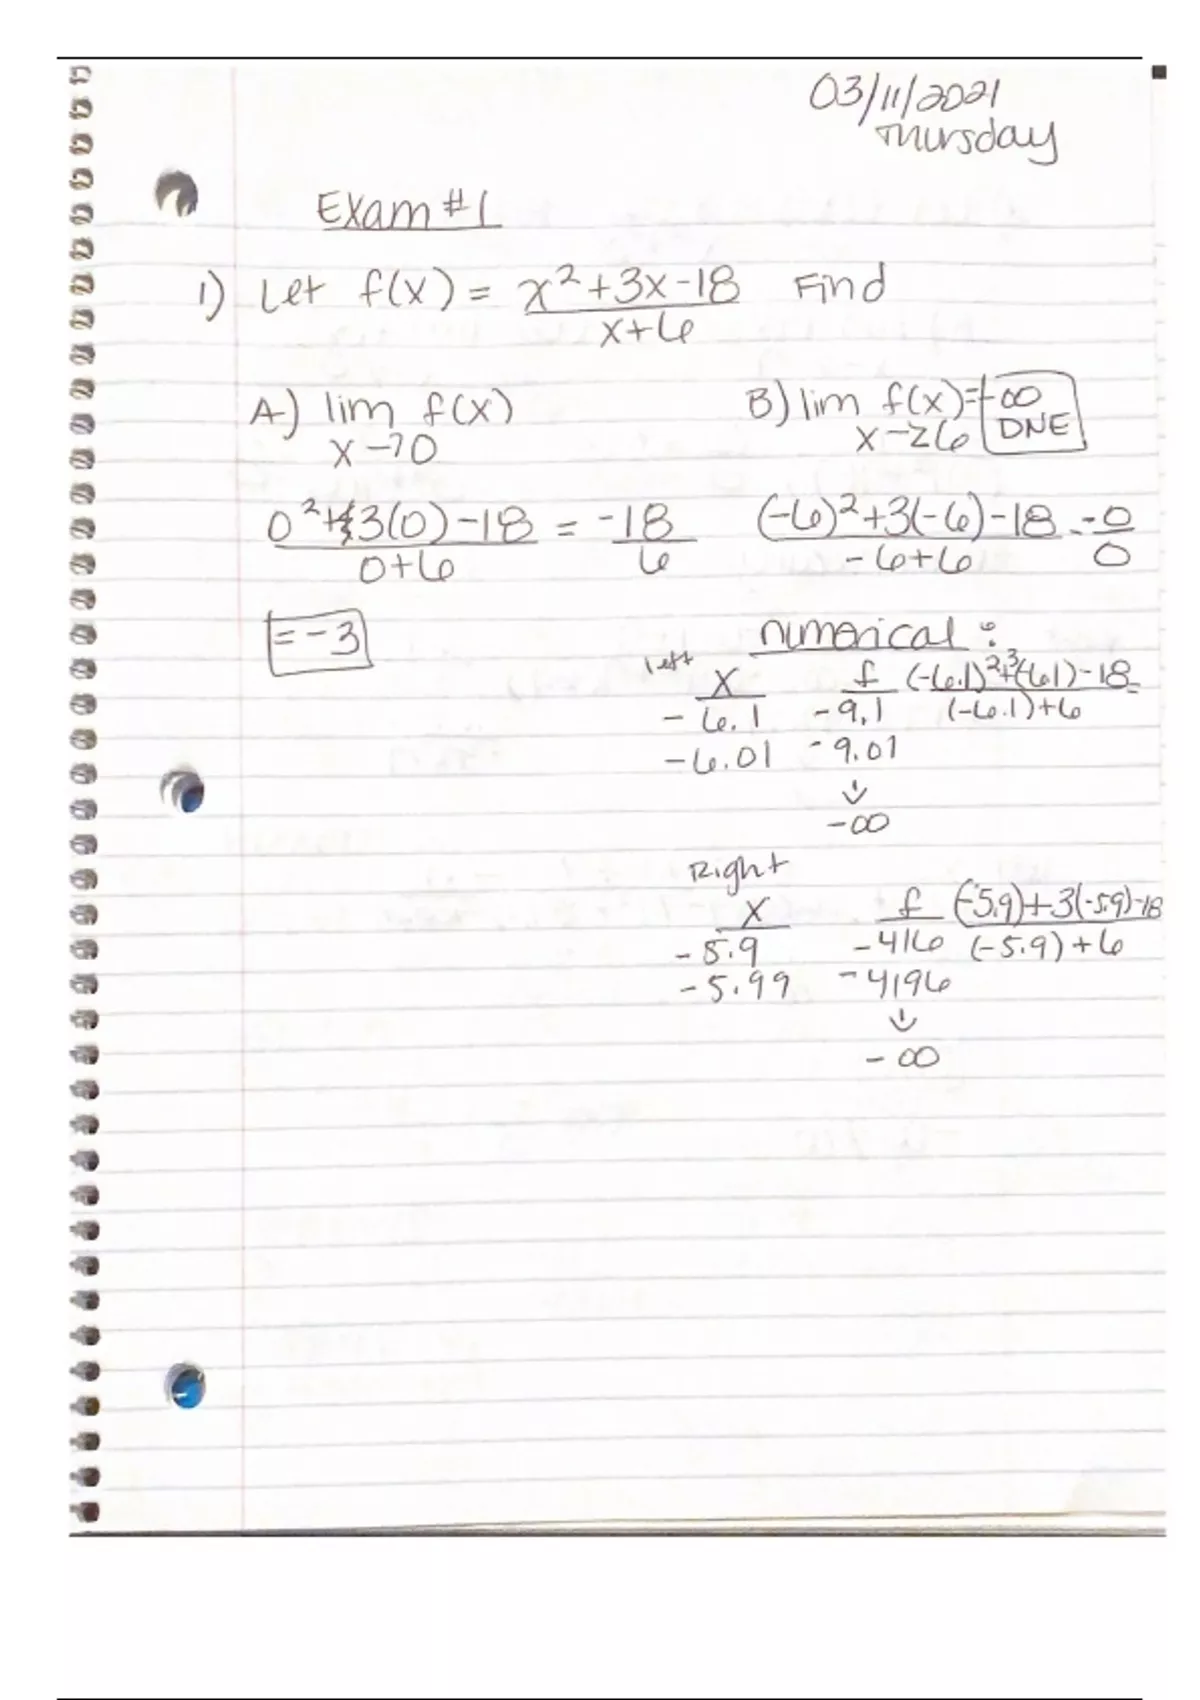 03/11/2021
Thursday
Exam #1
1) Let f(x) = x²+3x-18 Find
x+6
A.) lim f(x)
x→0
B) lim f(x)=-∞
x→-6 DNE
0²+3(0)-18 = -18
0+6 6
= -3
(-6)²+3(-6)-18 = 0
-6+6 0
numerical:
left
x f (-6.1)²+3(6.1)-18 =
-6.1 -9.1 (-6.1)+6
-6.01 -9.01
↓
-∞
Right
x f (-5.9)+3(-5.9)-18
-5.9 -416 (-5.9)+6
-5.99 -4196
↓
-∞